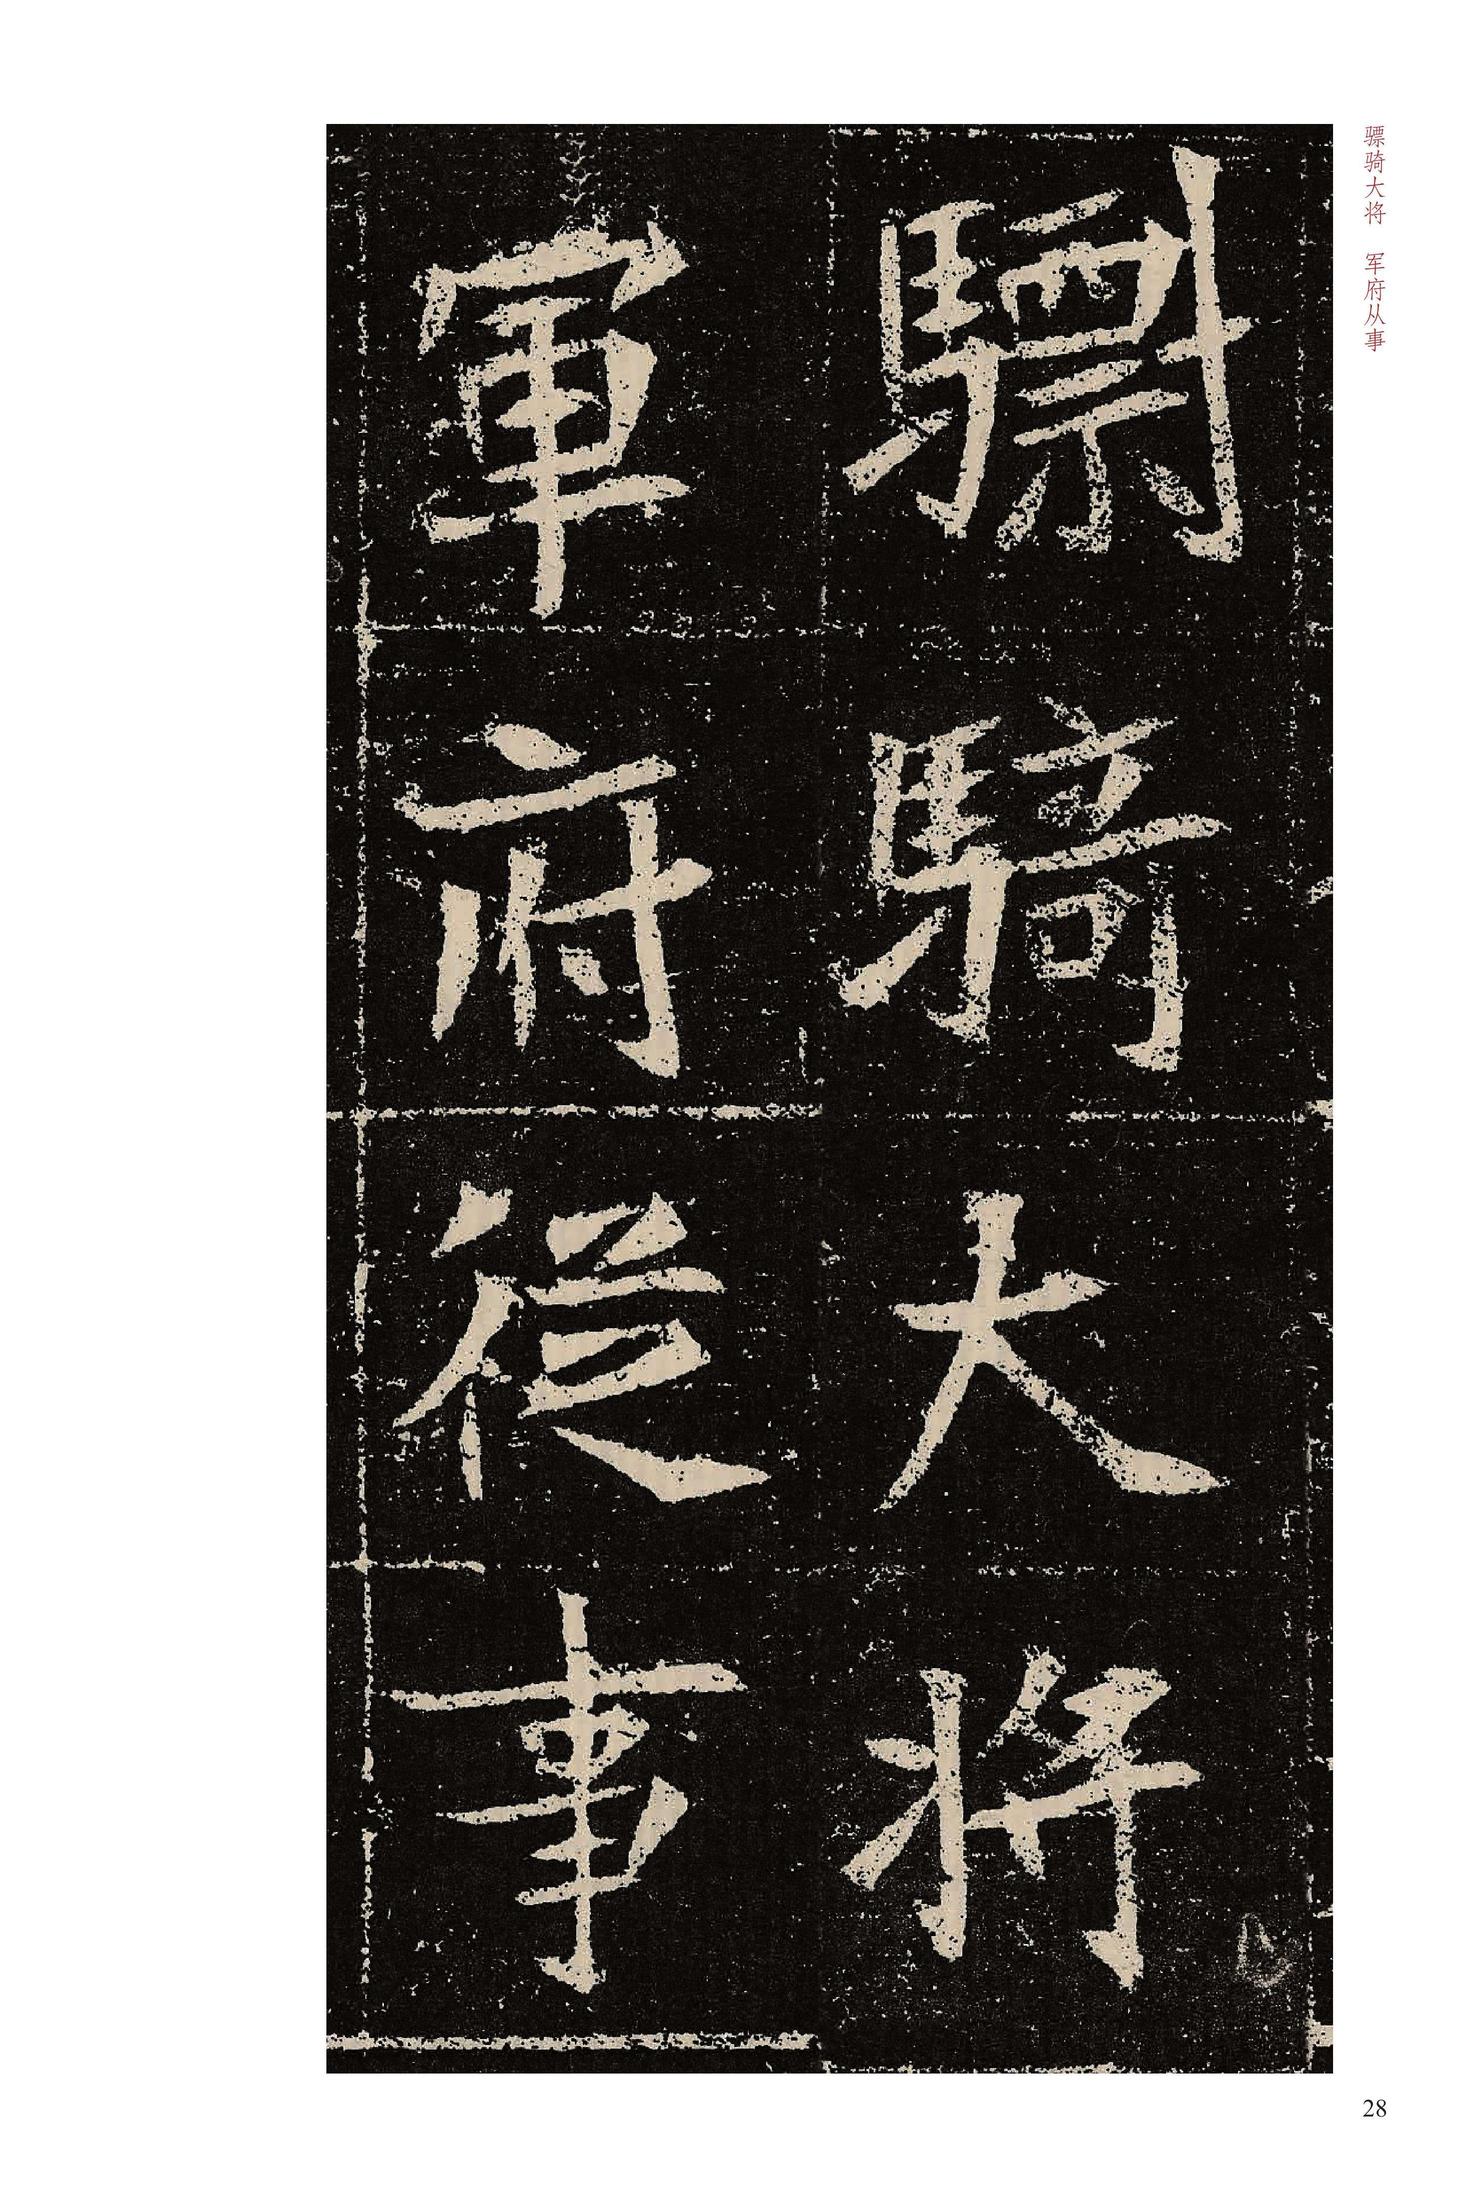 骠骑大将 军府从事
驃騎大將
軍府從事
28